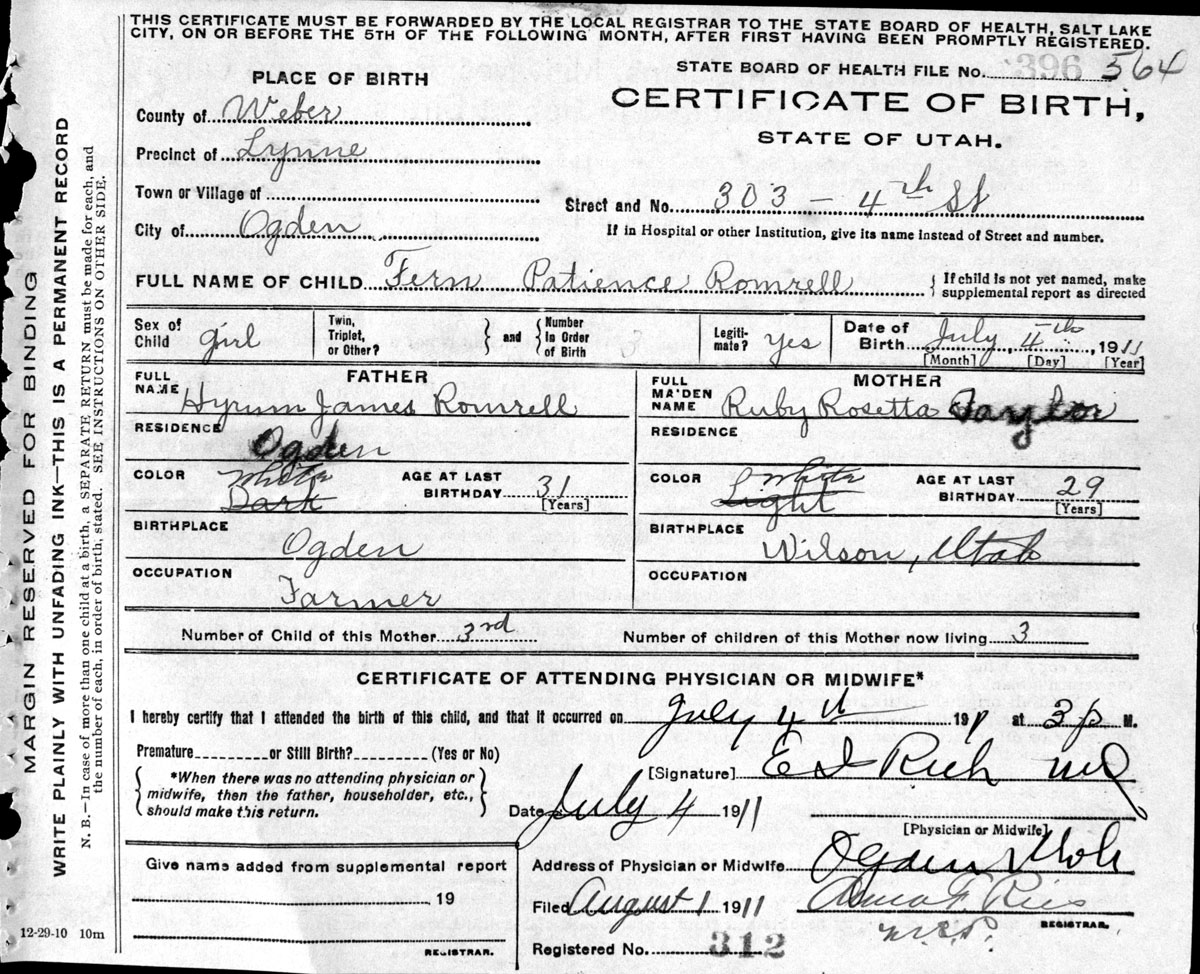 THIS CERTIFICATE MUST BE FORWARDED BY THE LOCAL REGISTRAR TO THE STATE BOARD OF HEALTH, SALT LAKE
CITY, ON OR BEFORE THE 5TH OF THE FOLLOWING MONTH, AFTER FIRST HAVING BEEN PROMPTLY REGISTERED.
STATE BOARD OF HEALTH FILE No. 396 564
PLACE OF BIRTH
CERTIFICATE OF BIRTH,
STATE OF UTAH.
County of Weber
Precinct of Lynne
Town or Village of
Street and No. 303 - 4th St
City of Ogden
If in Hospital or other Institution, give its name instead of Street and number.
FULL NAME OF CHILD Fern Patience Romrell
If child is not yet named, make
supplemental report as directed
Sex of Child girl
Twin, Triplet, or Other?
and
Number In Order of Birth 3
Legiti-mate? yes
Date of Birth July 4th, 1911
[Month] [Day] [Year]
FATHER
FULL NAME Hyrum James Romrell
RESIDENCE Ogden
COLOR White Dark
AGE AT LAST BIRTHDAY 31
[Years]
BIRTHPLACE Ogden
OCCUPATION Farmer
MOTHER
FULL MAIDEN NAME Ruby Rosetta Taylor
RESIDENCE
COLOR White Light
AGE AT LAST BIRTHDAY 29
[Years]
BIRTHPLACE Wilson, Utah
OCCUPATION
Number of Child of this Mother 3rd
Number of children of this Mother now living 3
CERTIFICATE OF ATTENDING PHYSICIAN OR MIDWIFE*
I hereby certify that I attended the birth of this child, and that it occurred on July 4th 1911 at 3 p M.
Premature or Still Birth? (Yes or No)
*When there was no attending physician or
midwife, then the father, householder, etc.,
should make this return.
[Signature] Rich MD
Date July 4 1911
[Physician or Midwife]
Give name added from supplemental report
19
REGISTRAR.
Address of Physician or Midwife Ogden Utah
Filed August 1 1911
REGISTRAR.
Registered No. 312
12-29-10 10m
MARGIN RESERVED FOR BINDING
WRITE PLAINLY WITH UNFADING INK—THIS IS A PERMANENT RECORD
N. B.—In case of more than one child at a birth, a SEPARATE RETURN must be made for each, and
the number of each, in order of birth, stated. SEE INSTRUCTIONS ON OTHER SIDE.